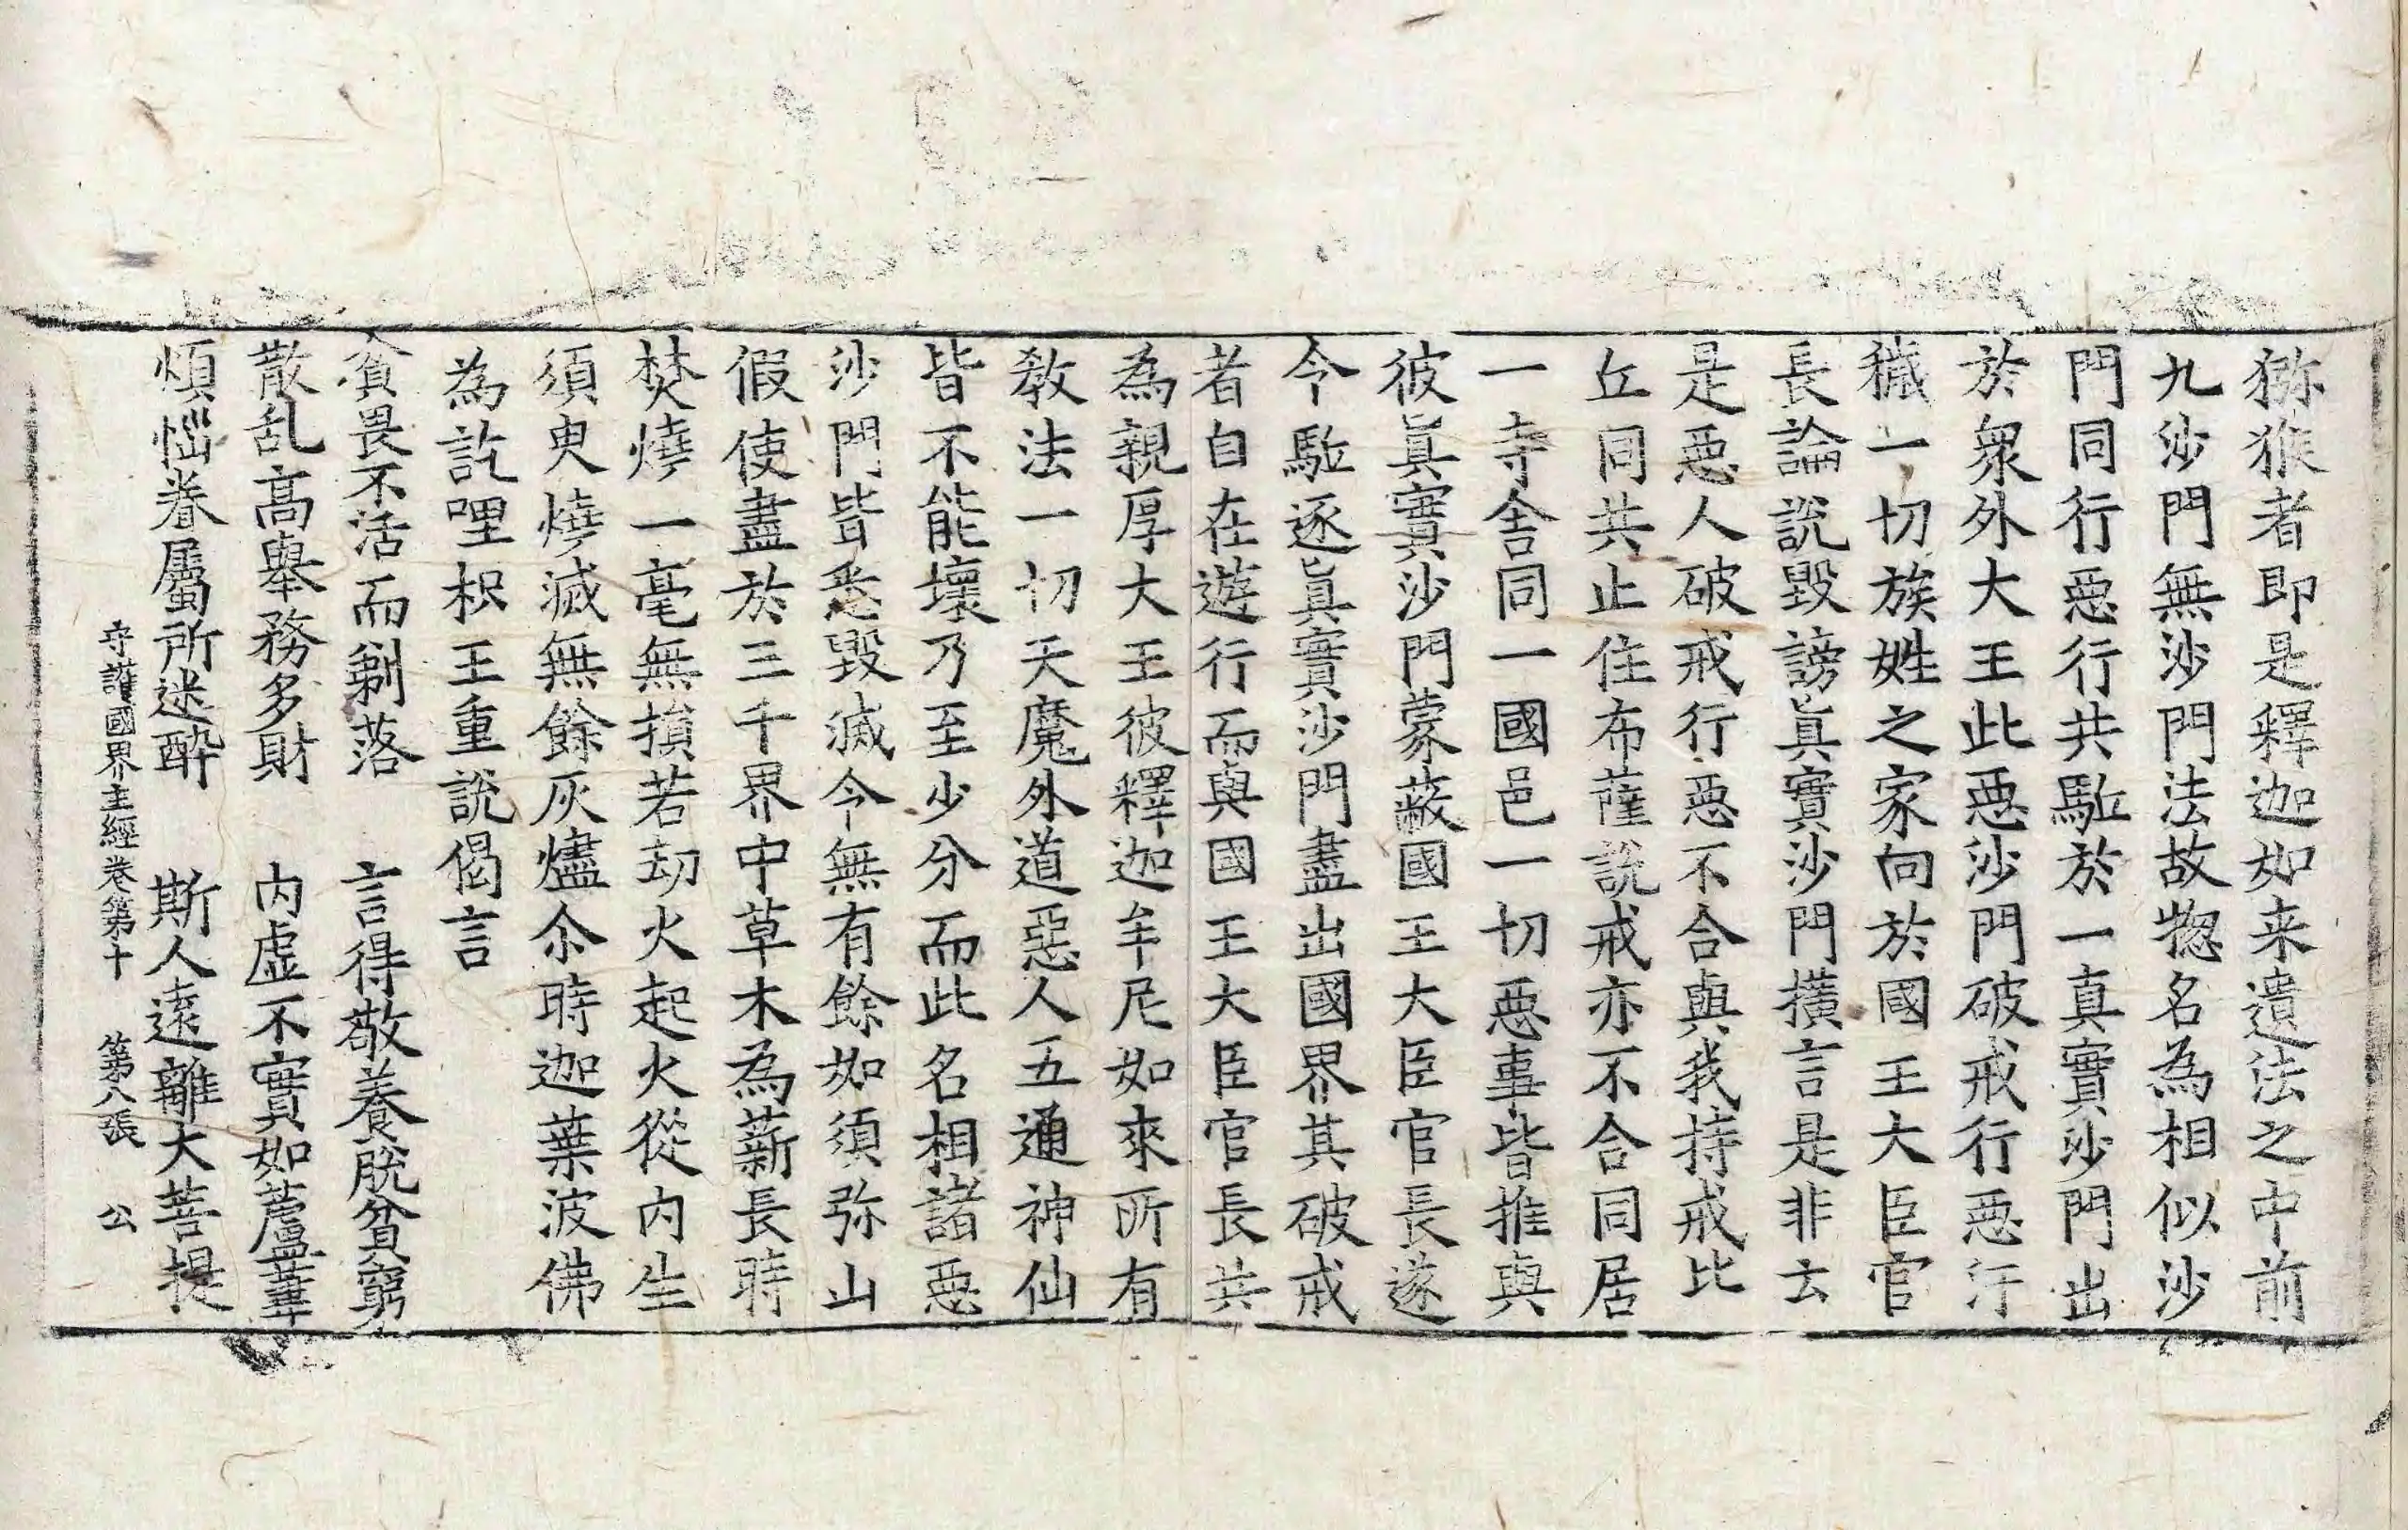 猕猴者即是釋迦如来遺法之中前
九沙門無沙門法故惣名為相似沙
門同行惡行共駈於一真實沙門出
於衆外大王此惡沙門破戒行惡汙
穢一切族姓之家向於國王大臣官
長論說毀謗眞實沙門橫言是非去
是惡人破戒行惡不合與我持戒比
丘同共止住布薩說戒亦不合同居
一寺舍同一國邑一切惡事皆推與
彼眞實沙門蒙蔽國王大臣官長遂
令駈逐眞實沙門盡出國界其破戒
者自在遊行而與國王大臣官長共
為親厚大王彼釋迦牟尼如來所有
教法一切天魔外道惡人五通神仙
皆不能壞乃至少分而此名相諸惡
沙門皆悉毀滅令無有餘如須弥山
假使盡於三千界中草木為薪長時
焚燒一毫無損若劫火起火從內生
須臾燒滅無餘灰燼尒時迦葉波佛
為訖哩枳王重說偈言
貧畏不活而剃落　言得敬養脫貧窮
散乱高舉務多財　內虛不實如蘆葦
煩惱眷屬所迷醉　斯人遠離大菩提
守護國界主經卷第十　第八張　公